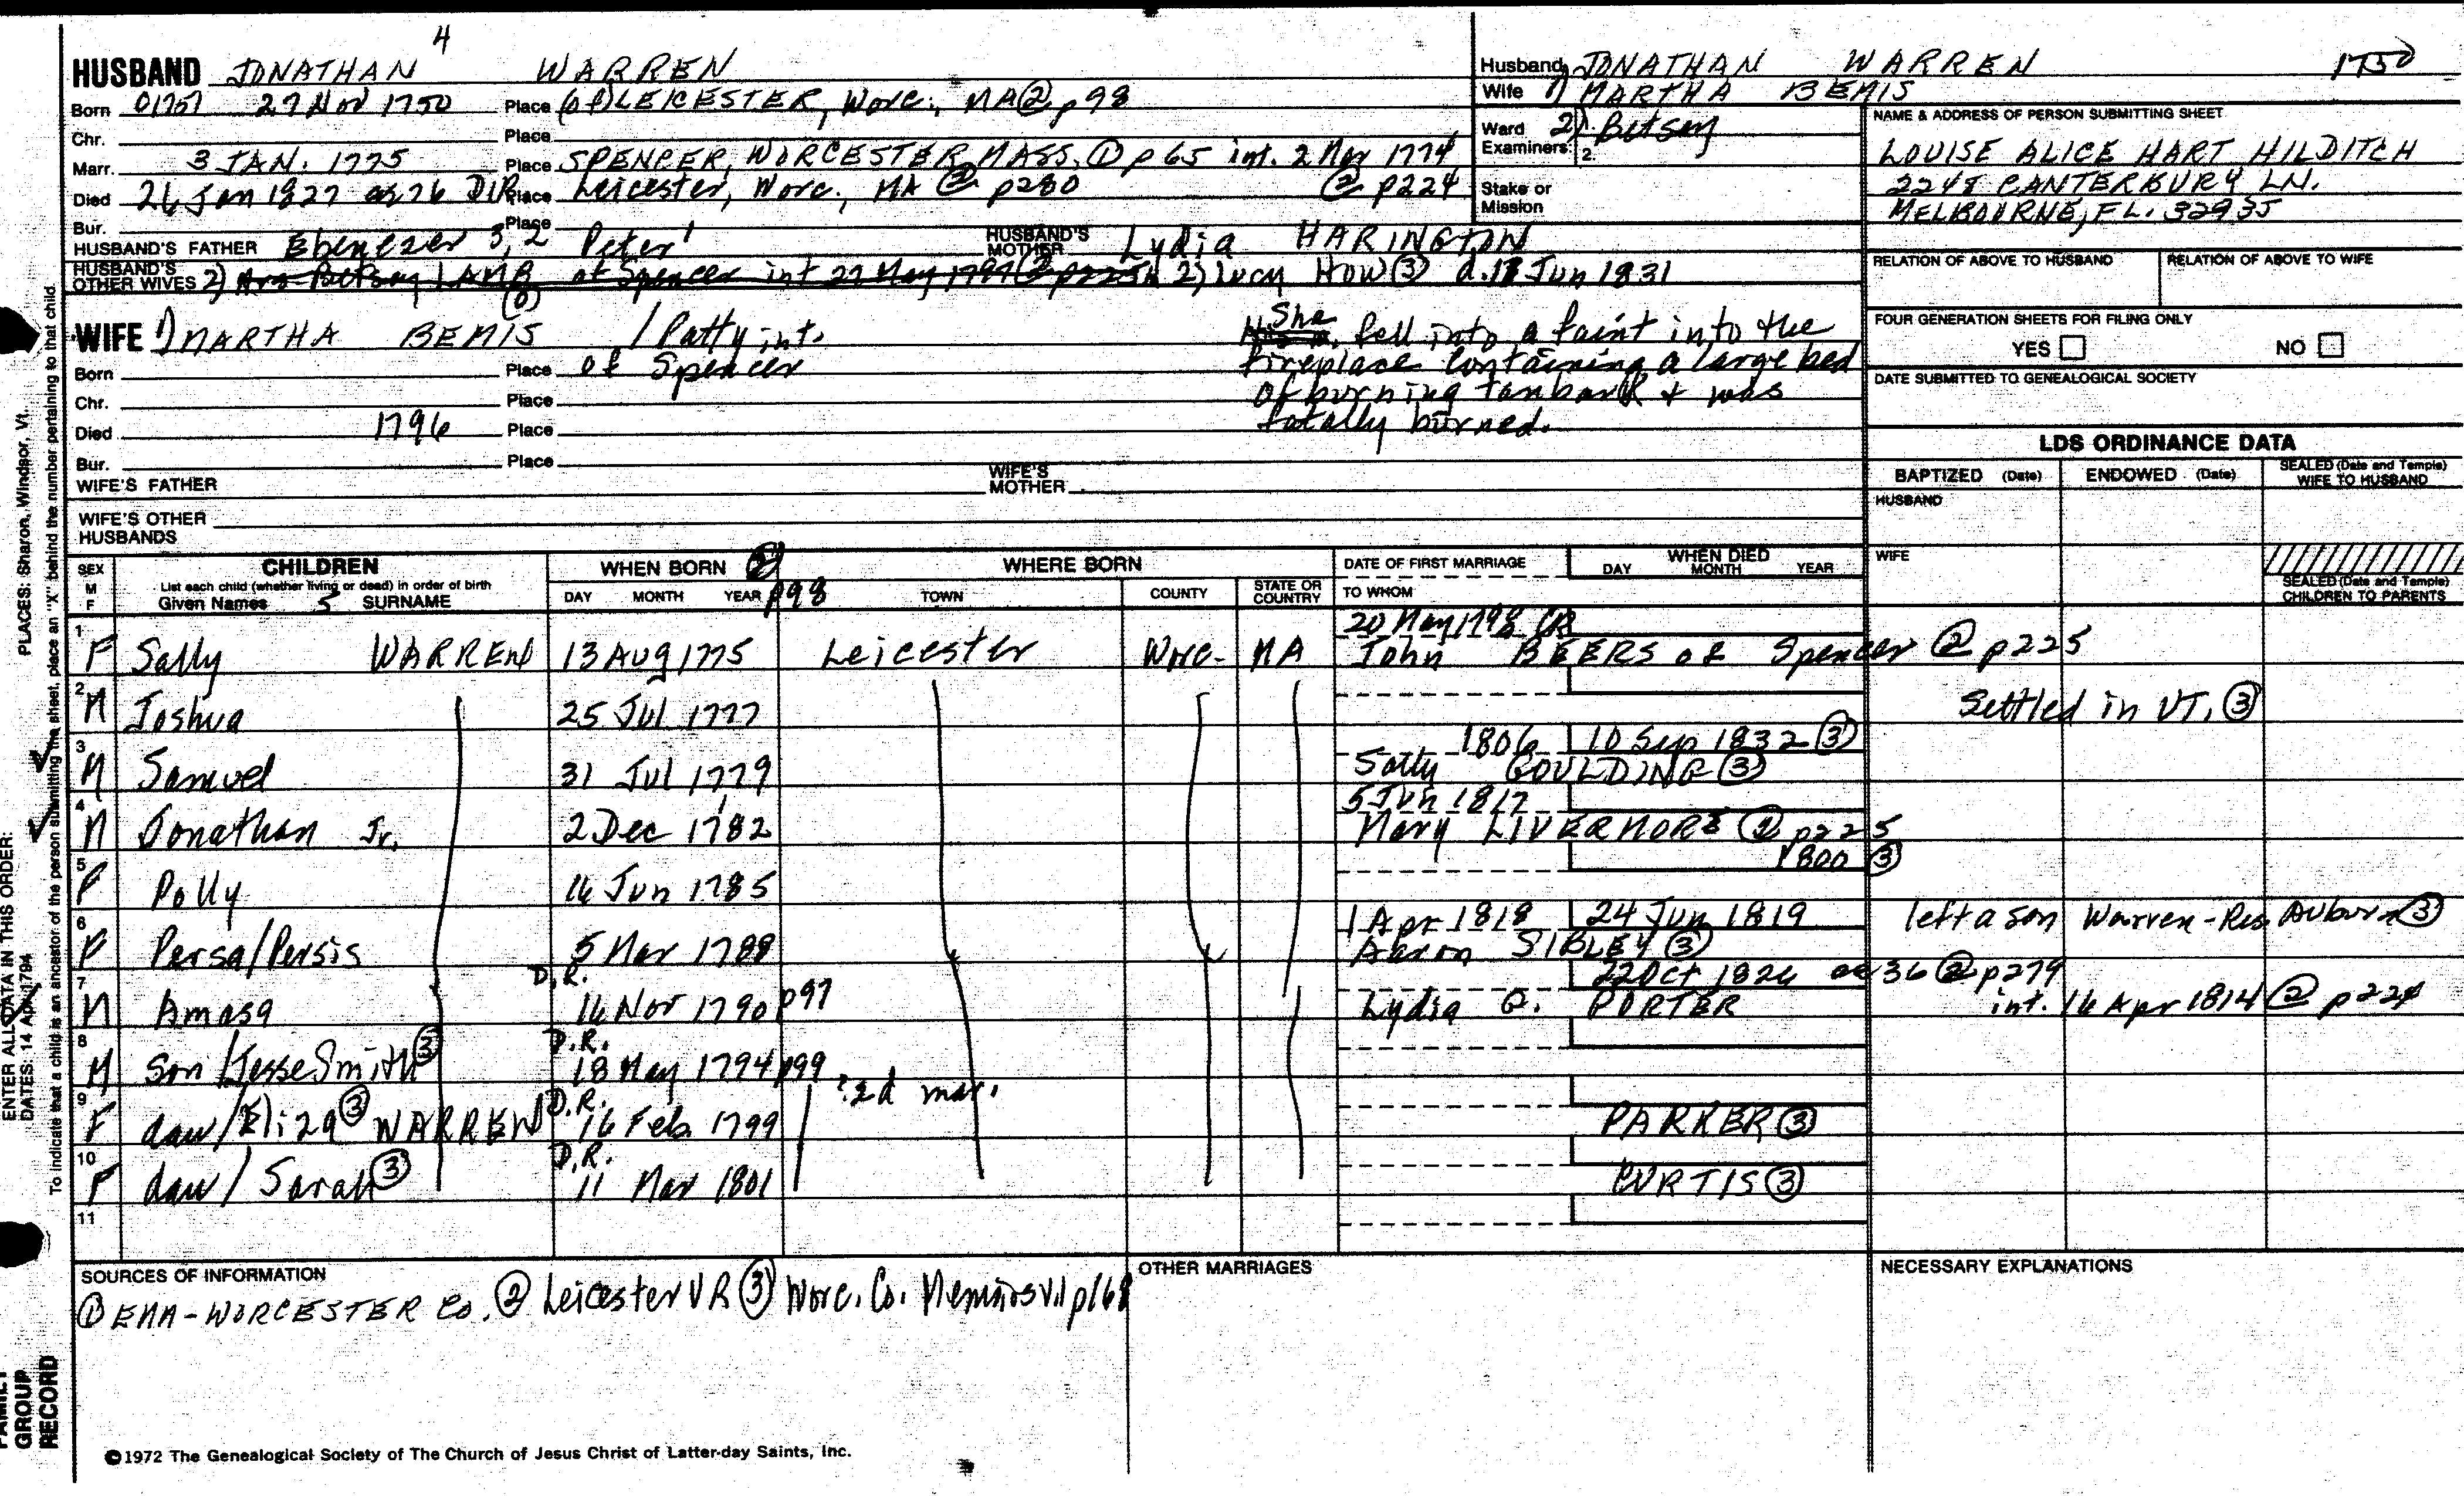 4
HUSBAND JONATHAN WARREN
Born 27 Nov 1750 Place (of) LEICESTER, Worc., MA ② p98
Chr. Place
Marr. 3 JAN. 1775 Place SPENCER, WORCESTER, MASS. ① p65 int. 2 Nov 1774
Died 26 Jan 1827 ae 76 D.R. Place Leicester, Worc., MA ② p280 ② p224
Bur. Place
HUSBAND'S FATHER Ebenezer 3, 2 Peter 1 HUSBAND'S MOTHER Lydia HARINGTON
HUSBAND'S OTHER WIVES 2) Mrs Betsey LAMB of Spencer int 27 May 1797 ② p225 2) Lucy HOW ③ d. Jun 1831
WIFE 1) MARTHA BEMIS / Patty int. She fell into a faint into the
Born Place of Spencer fireplace containing a large bed
Chr. Place of burning tanbark & was
Died 1796 Place totally burned.
Bur. Place
WIFE'S FATHER WIFE'S MOTHER
WIFE'S OTHER HUSBANDS
Husband JONATHAN WARREN 1750
Wife 1) MARTHA BEMIS
Ward Examiners: 2) Betsey
2.
Stake or Mission
NAME & ADDRESS OF PERSON SUBMITTING SHEET
LOUISE ALICE HART HILDITCH
2248 CANTERBURY LN.
MELBOURNE, FL. 32935
RELATION OF ABOVE TO HUSBAND RELATION OF ABOVE TO WIFE
FOUR GENERATION SHEETS FOR FILING ONLY
YES NO
DATE SUBMITTED TO GENEALOGICAL SOCIETY
LDS ORDINANCE DATA
BAPTIZED (Date) ENDOWED (Date) SEALED (Date and Temple) WIFE TO HUSBAND
HUSBAND
WIFE
SEALED (Date and Temple) CHILDREN TO PARENTS
SEX M F CHILDREN List each child (whether living or dead) in order of birth Given Names 5 SURNAME WHEN BORN ② p98 DAY MONTH YEAR WHERE BORN TOWN COUNTY STATE OR COUNTRY DATE OF FIRST MARRIAGE TO WHOM WHEN DIED DAY MONTH YEAR
20 May 1798 CR
1 F Sally WARREN 13 AUG 1775 Leicester Worc. MA John BEERS of Spencer ② p225
2 M Joshua 25 Jul 1777 Settled in VT. ③
1806 10 Sep 1832 ③
3 M Samuel 31 Jul 1779 Sally GOULDING ③
5 Jun 1817
4 M Jonathan Jr. 2 Dec 1782 Mary LIVERMORE ② p225
1800 ③
5 F Polly 16 Jun 1785
1 Apr 1818 24 Jun 1819 left a son Warren - Res Auburn ③
6 F Persa/Persis 5 Mar 1788 Aaron SIBLEY ③
22 Oct 1826 ae 36 ② p279
7 M Amasa D.R. 16 Nov 1790 p97 Lydia Q. PORTER int. 16 Apr 1814 ② p224
8 M Son/Jesse Smith ③ D.R. 18 May 1794 p99
9 F dau/Eliza ③ WARREN D.R. 16 Feb 1799 ?2d mar. PARKER ③
10 F dau/Sarah ③ D.R. 11 Mar 1801 CURTIS ③
11
SOURCES OF INFORMATION
① EMA-WORCESTER CO. ② Leicester VR ③ Worc. Co. p168
OTHER MARRIAGES
NECESSARY EXPLANATIONS
©1972 The Genealogical Society of The Church of Jesus Christ of Latter-day Saints, Inc.
PLACES: Sharon, Windsor, Vt.
To indicate that a child is an ancestor of the person submitting the sheet, place an "X" behind the number pertaining to that child.
ENTER ALL DATA IN THIS ORDER:
DATES: 14 Apr 1794
FAMILY GROUP RECORD